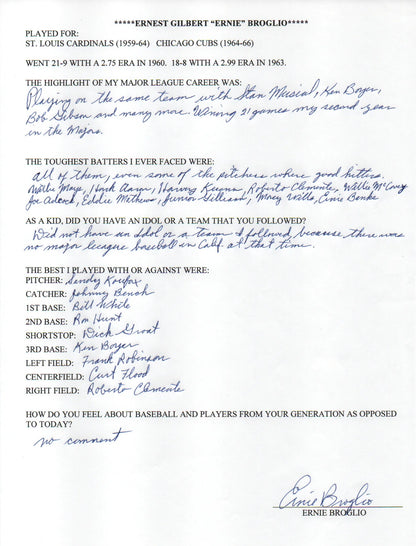 *****ERNEST GILBERT “ERNIE” BROGLIO*****
PLAYED FOR:
ST. LOUIS CARDINALS (1959-64) CHICAGO CUBS (1964-66)
WENT 21-9 WITH A 2.75 ERA IN 1960. 18-8 WITH A 2.99 ERA IN 1963.
THE HIGHLIGHT OF MY MAJOR LEAGUE CAREER WAS:
Playing on the same team with Stan Musial, Ken Boyer,
Bob Gibson and many more. Winning 21 games my second year
in the Majors.
THE TOUGHEST BATTERS I EVER FACED WERE:
all of them, even some of the pitchers where good hitters.
Willie Mays, Hank Aaron, Harvey Kuenn, Roberto Clemente, Willie McCovey
Joe Adcock, Eddie Mathews, Junior Gilliam, Maury Wills, Ernie Banks
AS A KID, DID YOU HAVE AN IDOL OR A TEAM THAT YOU FOLLOWED?
Did not have an idol or a team I followed because there was
no major league baseball in Calif. at that time.
THE BEST I PLAYED WITH OR AGAINST WERE:
PITCHER: Sandy Koufax
CATCHER: Johnny Bench
1ST BASE: Bill White
2ND BASE: Ron Hunt
SHORTSTOP: Dick Groat
3RD BASE: Ken Boyer
LEFT FIELD: Frank Robinson
CENTERFIELD: Curt Flood
RIGHT FIELD: Roberto Clemente
HOW DO YOU FEEL ABOUT BASEBALL AND PLAYERS FROM YOUR GENERATION AS OPPOSED
TO TODAY?
no comment
Ernie Broglio
ERNIE BROGLIO